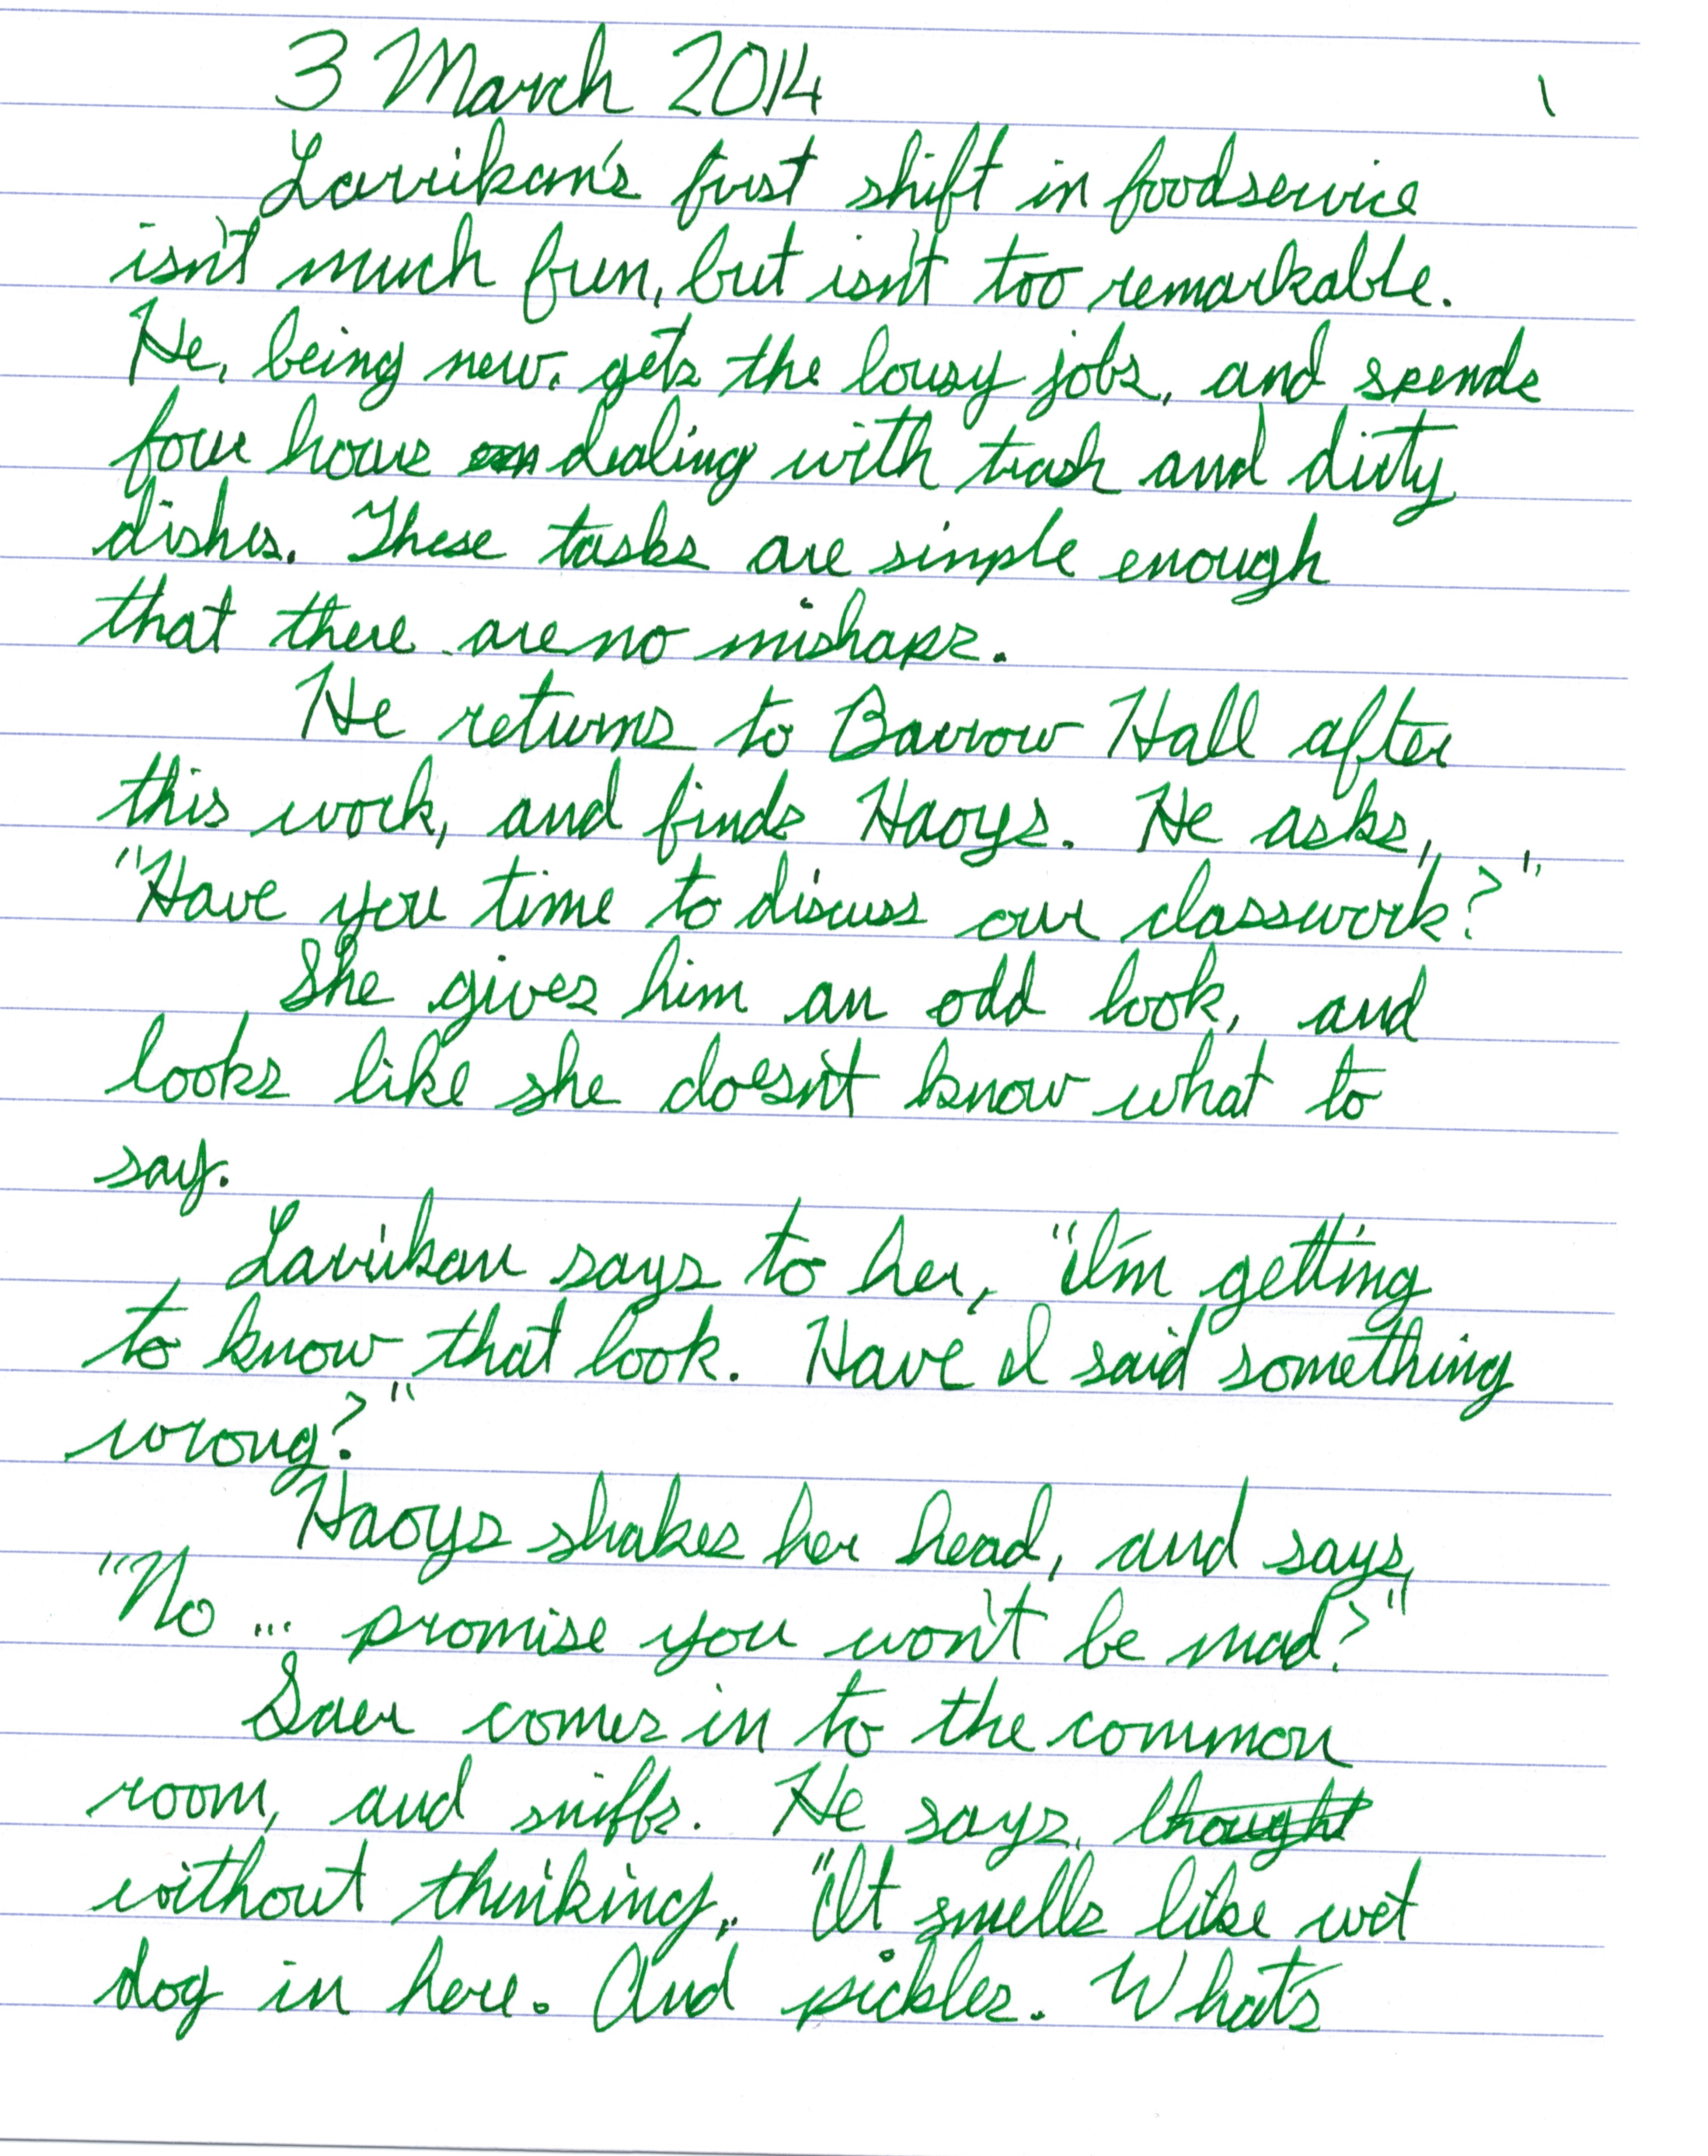 3 March 2014 1
Larrikan's first shift in foodservice
isn't much fun, but isn't too remarkable.
He, being new, gets the lousy jobs, and spends
four hours dealing with trash and dirty
dishes. These tasks are simple enough
that there are no mishaps.
He returns to Barrow Hall after
this work, and finds Haoys. He asks,
"Have you time to discuss our classwork?"
She gives him an odd look, and
looks like she doesn't know what to
say.
Larrikan says to her, "I'm getting
to know that look. Have I said something
wrong?"
Haoys shakes her head, and says,
"No ... promise you won't be mad?"
Saer comes in to the common
room, and sniffs. He says, thought
without thinking, "It smells like wet
dog in here. And pickles. What's